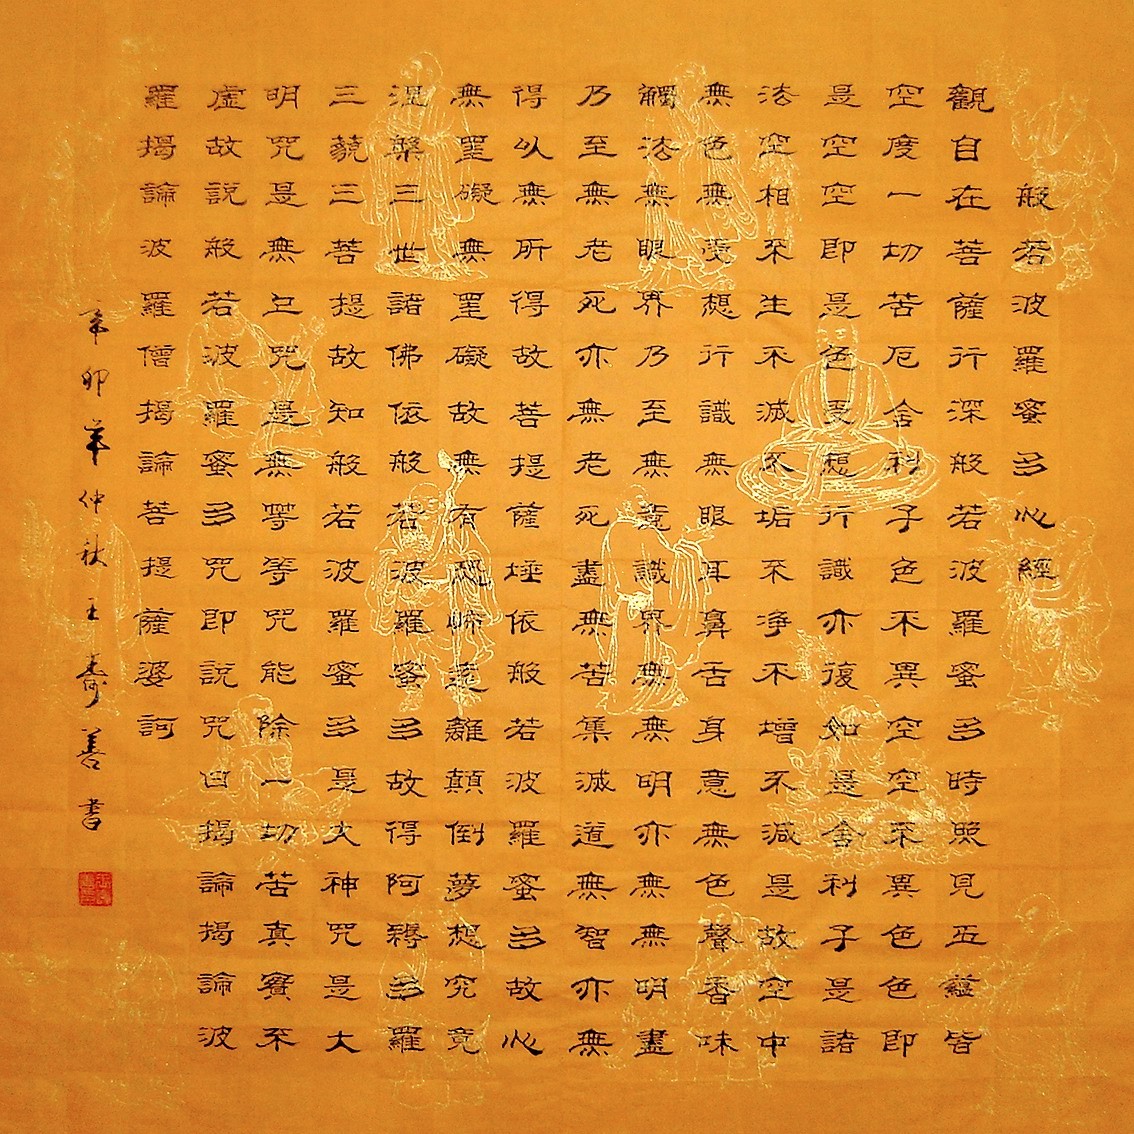 般若波羅蜜多心經
觀自在菩薩行深般若波羅蜜多時照見五蘊皆
空度一切苦厄舍利子色不異空空不異色色即
是空空即是色受想行識亦復如是舍利子是諸
法空相不生不滅不垢不淨不增不減是故空中
無色無受想行識無眼耳鼻舌身意無色聲香味
觸法無眼界乃至無意識界無無明亦無無明盡
乃至無老死亦無老死盡無苦集滅道無智亦無
得以無所得故菩提薩埵依般若波羅蜜多故心
無罣礙無罣礙故無有恐怖遠離顛倒夢想究竟
涅槃三世諸佛依般若波羅蜜多故得阿耨多羅
三藐三菩提故知般若波羅蜜多是大神咒是大
明咒是無上咒是無等等咒能除一切苦真實不
虛故說般若波羅蜜多咒即說咒曰揭論揭論波
羅揭論波羅僧揭論菩提薩婆訶
辛卯年仲秋王壽善書